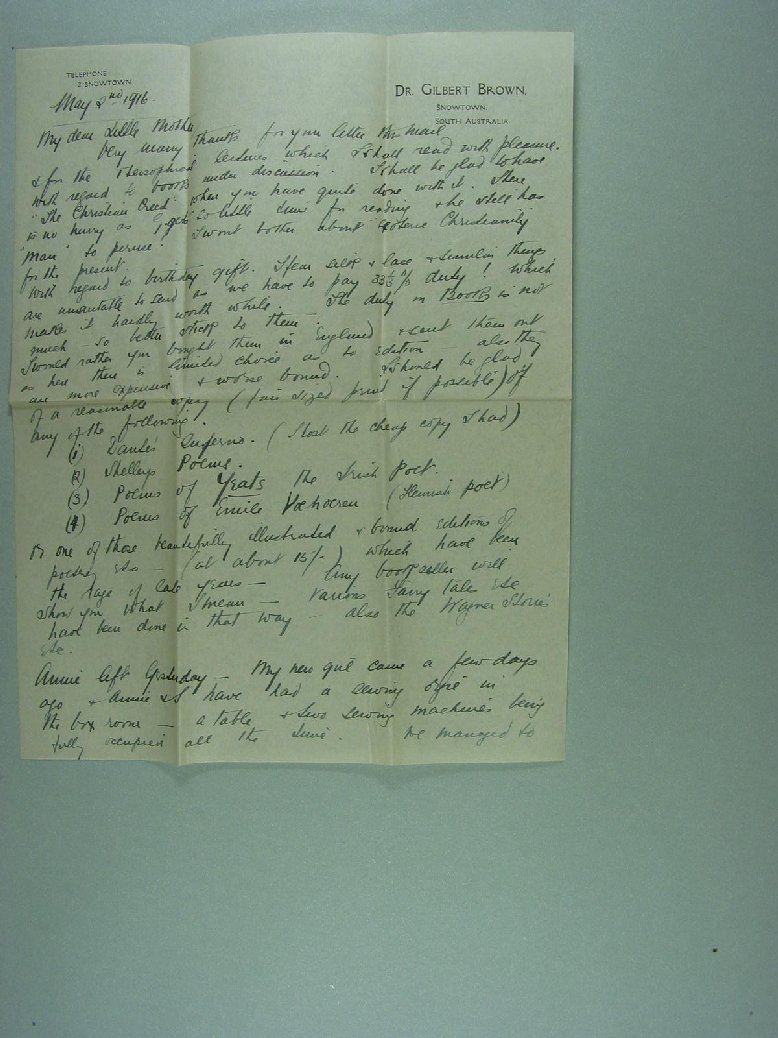 TELEPHONE
2 SNOWTOWN
DR. GILBERT BROWN,
SNOWTOWN,
SOUTH AUSTRALIA
May 2nd 1916.
My dear Little Mother
Very many thanks for your letter this mail
& for the Theosophical lectures which I shall read with pleasure.
With regard to books under discussion. I shall be glad to have
"The Christian Creed" when you have quite done with it. There
is no hurry as I get so little time for reading & he still has
"Man" to peruse! I wont bother about Esoteric Christianity
for the present.
With regard to birthday gift. I fear silk & lace & similar things
are unsuitable to send as we have to pay 33⅓% duty! which
makes it hardly worth while. The duty on Books is not
much so better stick to them.
I would rather you bought them in England & sent them out
as here there is limited choice as to edition also they
are more expensive & worse bound. I should be glad
of a reasonable copy (fair sized print if possible) of
any of the following.
(1) Dante's Inferno. (I lost the cheap copy I had)
(2) Shelleys Poems.
(3) Poems of Yeats the Irish Poet.
(4) Poems of Emile Verhaeren (Flemish poet)
Or one of those beautifully illustrated & bound editions of
poetry etc — (at about 15/-) which have been
the rage of late years — Any bookseller will
show you what I mean — Various Fairy tales etc
have been done in that way — also the Wagner Stories
etc.
Annie left yesterday — My new came a few days
ago & Annie & I have had a sewing in
the box room — a table & two sewing machines being
fully occupied all the time. We managed to